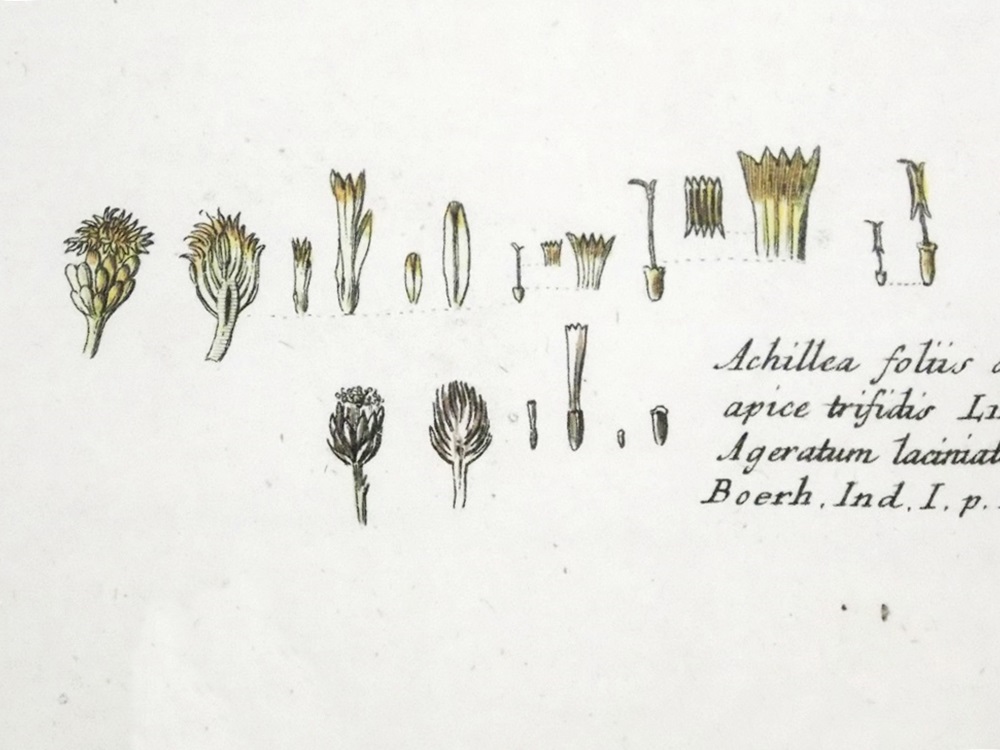 Achillea foliis
apice trifidis
Ageratum laciniat
Boerh. Ind. I. p.